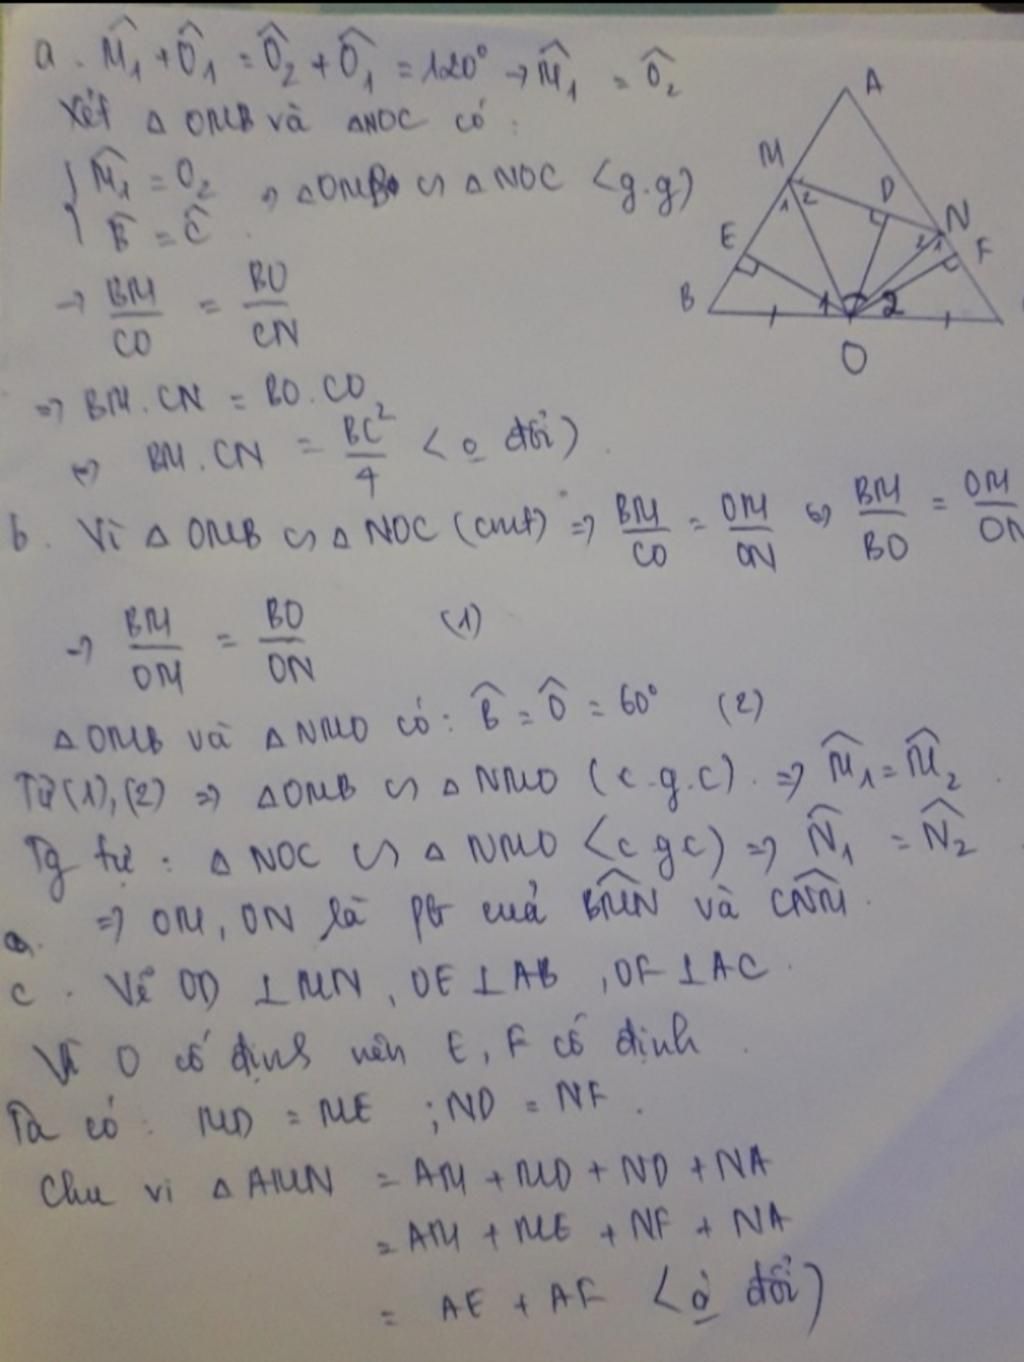 a. M̂₁ + Ô₁ = Ô₂ + Ô₁ = 120° → M̂₁ = Ô₂
Xét △ OMB và △NOC có:
{ M̂₁ = O₂
B̂ = Ĉ. ⇒ △OMB ∽ △ NOC <g.g)
→ BM/CO = BO/CN
⇒ BM.CN = BO.CO
⇔ BM.CN = BC²/4 <o đổi).
b. Vì △ OMB ∽ △ NOC (cmt) ⇒ BM/CO = OM/ON ⇔ BM/BO = OM/ON
→ BM/OM = BO/ON (1)
△ OMB và △ NMO có: B̂ = Ô = 60° (2)
Từ (1),(2) ⇒ △OMB ∽ △ NMO (c.g.c). ⇒ M̂₁ = M̂₂.
Tg tự: △ NOC ∽ △ NMO <c g c) ⇒ N̂₁ = N̂₂
⇒ OM, ON là pg cuả BM̂N và CN̂M.
c. Vẽ OD ⊥ MN, OE ⊥ AB, OF ⊥ AC.
Vì O cố định nên E, F cố định.
Ta có: MD = ME ; ND = NF.
Chu vi △ AMN = AM + MD + ND + NA
= AM + ME + NF + NA
= AE + AF <o đổi)
A
M
D
N
1 2
2 1
E
F
B
1 2
O